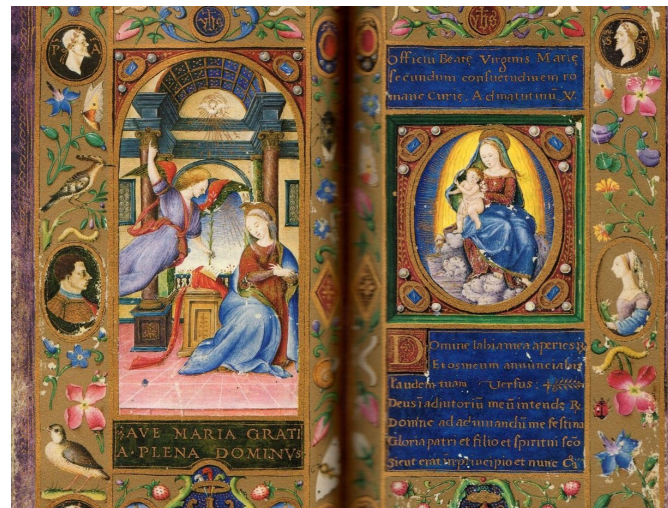 yhs
P A
AVE MARIA GRATI
A · PLENA DOMINVS
yhs
Officiū Beate Virginis Marie
secundum consuetudinem ro
mane Curie Ad matutinū V.
Domine labia mea aperies R
Et os meum annunciabit
laudem tuam Versus
Deus ī adiutoriū meū intende R
Domine ad adiuvandū me festina
Gloria patri et filio et spiritui sco
Sicut erat in principio et nunc